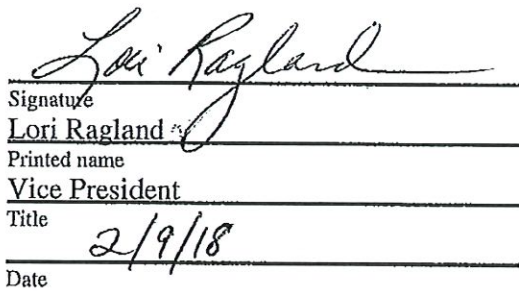 Lori Ragland
Signature
Lori Ragland
Printed name
Vice President
Title
2/9/18
Date